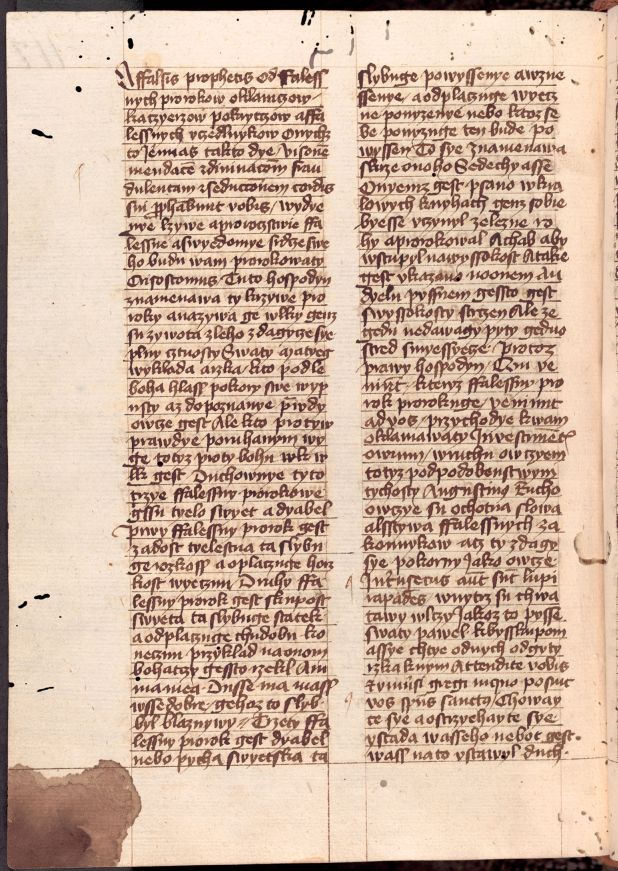 A ffalsis prophetis Od ffaless
nych prorokow oklamaczow
kaczyerzow pokrytczow a ffa
lessnych vrzednykow Onychz
to Jeremias takto dye Visionem
mendacem et diuinacionem frau
dulentam et seduccionem cordis
sui prophetabunt vobis wydye
nye lzywe a proroczstwie ffa
lessne a swedomye srdcze swe
ho budu wam prorokowaty
Crisostomus Tuto hospodyn
znamenawa ty krzywe pro
roky a nazywa ge wlky genz
su zywota zleho zdagycze sye
plny cztnosty Swaty Matyeg
wyklada a rzka kto podle
boha hlass pokory swe wyp
usty az do poznanye prawdy
owcze gest Ale kto protyw
prawdye poruhanym wy
ge totyz proty bohu wlk w
lk gest Duchownye tyto
trzye ffalessny prorokowe
gssu tyelo swyet a dyabel
Prwy ffalessny prorok gest
zadost tyelestna ta slybu
ge rozkoss a oplaczuge horz
kost wyecznu Druhy ffa
lessny prorok gest skupost
swyeta ta slybuge statek
a odplaczuge chudobu ko
neczni przyklad na onom
bohatczy gessto rzekl Ani
ma mea Dusse ma mass
wsse dobre gehoz to slyb
byl blaznywy Trzety ffa
lessny prorok gest dyabel
nebo pycha swyetska ta
slybuge powyssenye a wzne
ssenye a odplaczuge wyecz
ne ponyzenye nebo ktoz se
be ponyzuge ten bude po
wyssen To sye znamenawa
skrze onoho Sedechyasse
Onyemz gest psano w kra
lowych knyhach genz sobie
byesse vczynyl zelezne ro
hy a prorokowal Achab aby
wstupyl na wysokost A take
gest vkazano na onem An
dyelu pyssnem gessto gest
s wyssokosty strzen Ale ze
gedni nedawagy pyty geduo
stred smyessyecze Protoz
prawy hospodyn Qui ve
niunt kterzy ffalessny pro
rok prorokuge veniunt
ad vos przychodye k wam
oklamawaty In vestimentis
ouium w ruchu owczyem
totyz pod podobenstwym
tychosty Augustinus Rucho
owczye su ochotna slowa
a lsstywa ffalessnych za
konnykow acz ty zdagy
sye pokorny jako owcze
Intrinsecus autem sunt lupi
rapaces wnytrz su chwa
tawy wlczy Jakoz to pysse
swaty pawel k byskupom
Assye chtye od nych odgyty
rzka k nym Attendite vobis
et vniuersi gregi in quo posuit
vos spiritus sanctus Choway
te sye a ostrzyehayte sye
y stada wasseho nebot gest
wass na to vstawyl duch